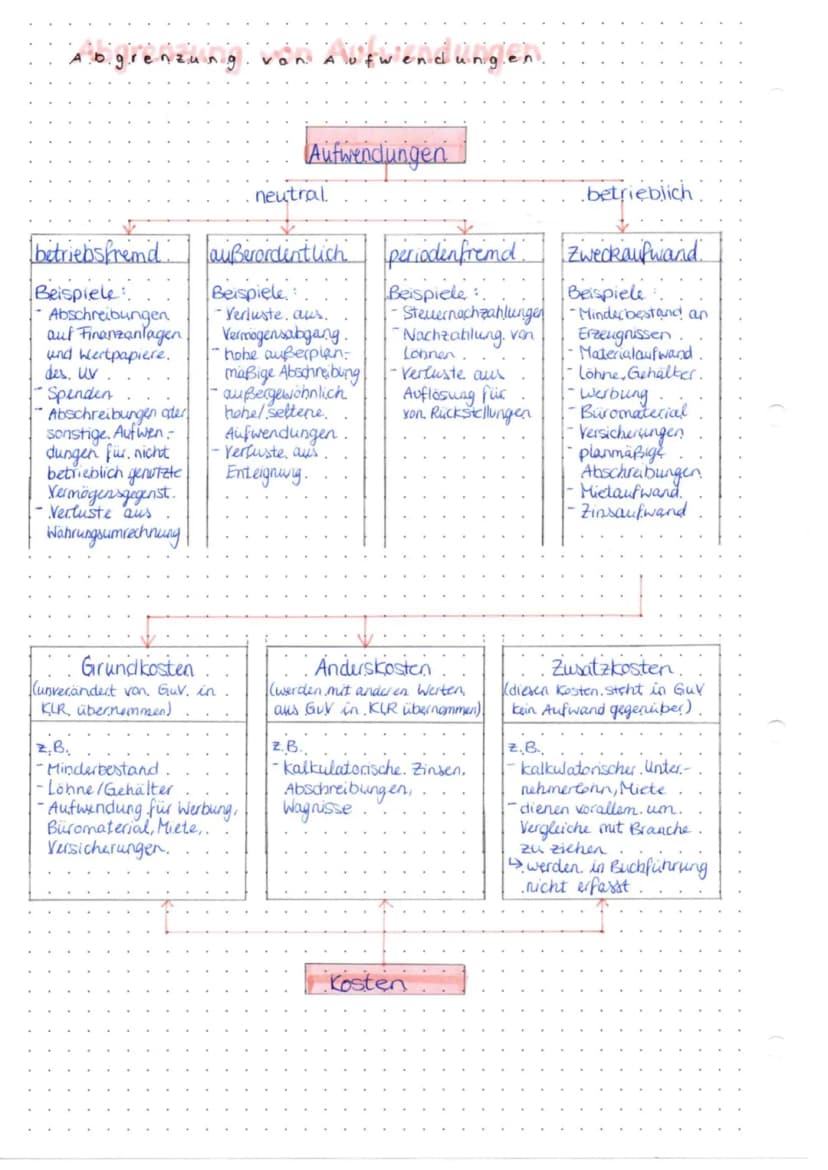 Abgrenzung von Aufwendungen
Aufwendungen
neutral
betrieblich
betriebsfremd
Beispiele:
- Abschreibungen
auf Finanzanlagen
und Wertpapiere
des UV
- Spenden
- Abschreibungen oder
sonstige Aufwen-
dungen für nicht
betrieblich genutzte
Vermögensgegenst.
- Verluste aus
Währungsumrechnung
außerordentlich
Beispiele:
- Verluste aus
Vermögensabgang
- hohe außerplan-
mäßige Abschreibung
- außergewöhnlich
hohe/seltene
Aufwendungen
- Verluste aus
Enteignung
periodenfremd
Beispiele:
- Steuernachzahlungen
- Nachzahlung von
Löhnen
- Verluste aus
Auflösung für
von Rückstellungen
Zweckaufwand
Beispiele:
- Minderbestand an
Erzeugnissen
- Materialaufwand
- Löhne, Gehälter
- Werbung
- Büromaterial
- Versicherungen
- planmäßige
Abschreibungen
- Mietaufwand
- Zinsaufwand
Grundkosten
(unverändert von GuV in
KLR übernommen)
z.B.
- Minderbestand
- Löhne/Gehälter
- Aufwendung für Werbung,
Büromaterial, Miete,
Versicherungen
Anderskosten
(werden mit anderen Werten
aus GuV in KLR übernommen)
z.B.
- kalkulatorische Zinsen,
Abschreibungen,
Wagnisse
Zusatzkosten
(diesen Kosten steht in GuV
kein Aufwand gegenüber)
z.B.
- kalkulatorischer Unter-
nehmerlohn, Miete
- dienen vorallem um
Vergleiche mit Branche
zu ziehen
↳ werden in Buchführung
nicht erfasst
Kosten